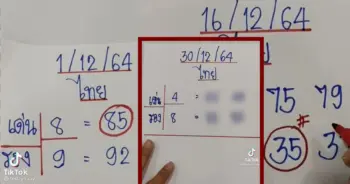 1/12/64
ไทย
เด่น 8 = 85
รอง 9 = 92
TikTok
30/12/64
ไทย
เด่น 4 =
รอง 8 =
TikTok
16/12/64
75 79
35 3